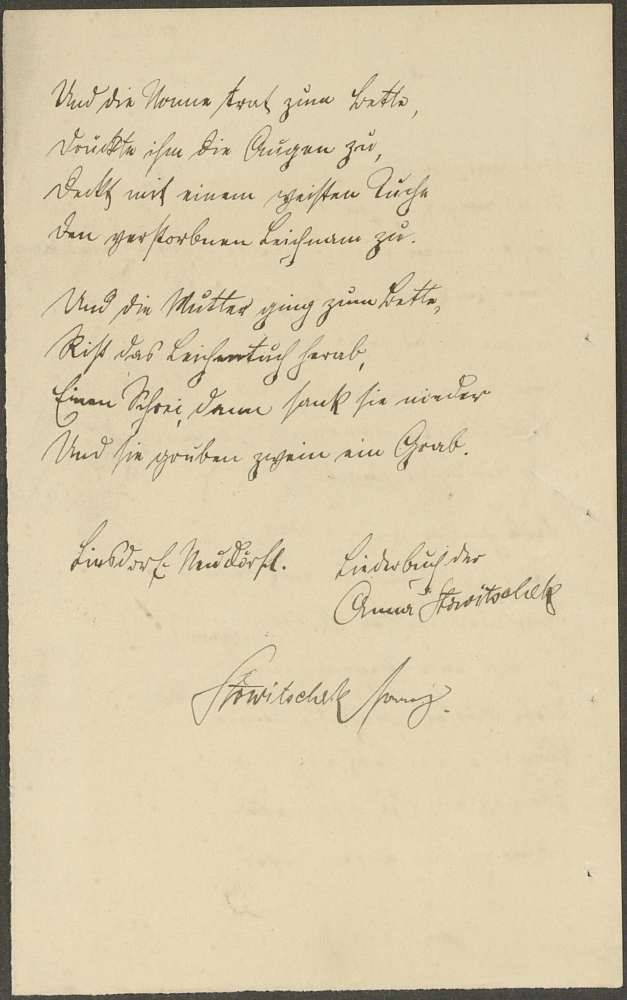 Und die Nonne trat zum Bette,
Drückte ihm die Augen zu,
Deckt mit einem weißen Tuche
Den verstorbnen Leichnam zu.
Und die Mutter ging zum Bette,
Riß das Leichentuch herab,
Einen Schrei, dann sank sie nieder
Und sie gruben zwein ein Grab.
Liederbuch der
Anna Stowitschek
Stowitschek